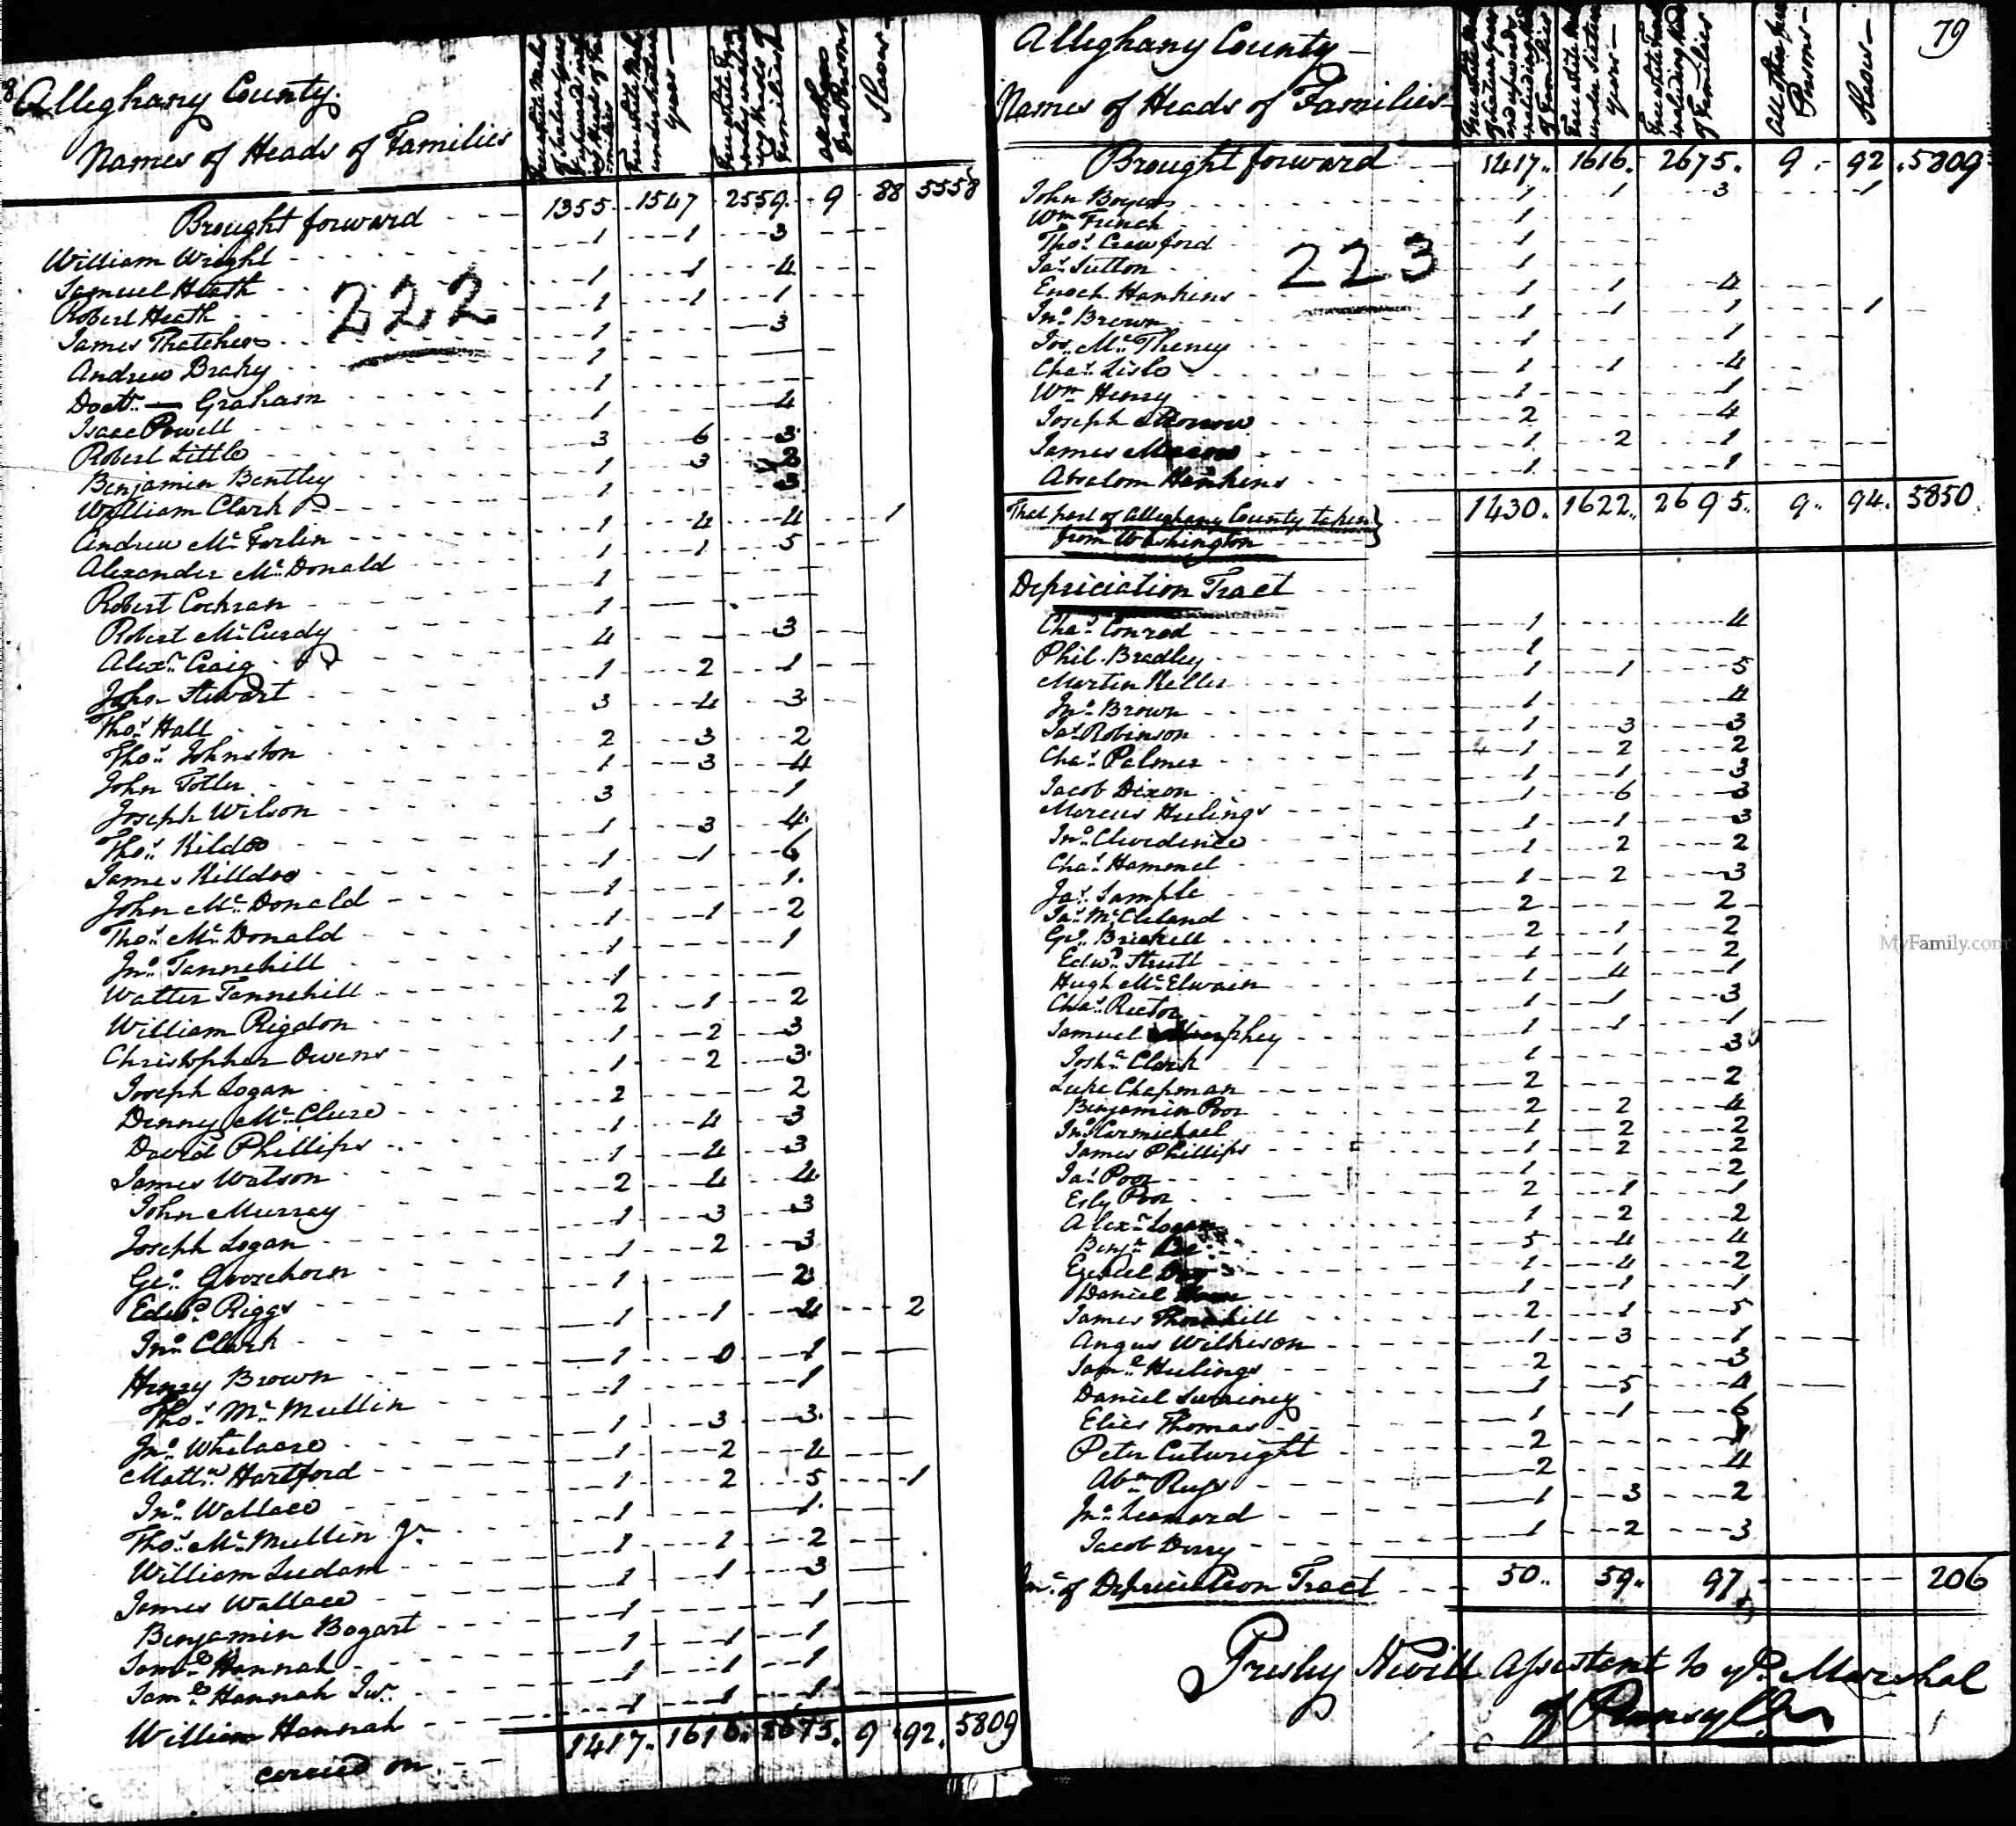 8
Alleghany County.
Names of Heads of Families
Free white Males of sixteen years & upwards including Heads of Families
Free white Males under sixteen years
Free white Females including Heads of Families
All other free Persons
Slaves
Brought forward 1355 1547 2559 9 88 5558
William Wright 1 1 3
222
Samuel Heath 1 1 4
Robert Heath 1 1 1
James Thatcher 1 3
Andrew Brahy 1
Doctr. — Graham 1
Isaac Powell 1 4
Robert Little 3 6 3
Benjamin Bentley 1 3
William Clark 1 3
Andrew McFarlin 1 4 4 1
Alexander McDonald 1 1 5
Robert Cochran 1
Robert McCurdy 1
Alexr. Craig 4 3
John Stewart 1 2 1
Thos. Hall 3 4 3
Thos. Johnston 2 3 2
John Totler 1 3 4
Joseph Wilson 3 1
Thos. Kildoo 1 3 4
James Killdoo 1 1 6
John McDonald 1 1
Thos. McDonald 1 1 2
Jno. Tannehill 1 1
Walter Tannehill 1
William Rigdon 2 1 2
Christopher Owens 1 2 3
Joseph Logan 1 2 3
Denny McClure 2 2
David Phillips 1 4 3
James Watson 1 4 3
John Murray 2 4 4
Joseph Logan 1 3 3
Geo. Goosehorn 1 2 3
Edwd. Riggs 1 2
Jno. Clark 1 1 4 2
Henry Brown 1 0 1
Thos. McMullin 1 1
Jno. Whitacre 1 3 3
Mattw. Hartford 1 2 4
Jno. Wallace 1 2 5 1
Thos. McMullin Jr. 1 1
William Ludam 1 1 2
James Wallace 1 1 3
Benjamin Bogart 1 1
Saml. Hannah 1 1 1
Saml. Hannah Jur. 1 1 1
William Hannah 1 1 1
carried on 1417 1616 2675 9 92 5809
Alleghany County
79
Names of Heads of Families
Free white Males of sixteen years and upwards including Heads of Families
Free white Males under sixteen years
Free white Females including Heads of Families
All other free Persons
Slaves
Brought forward 1417 1616 2675 9 92 5809
John Boyers 1 1 3 1
Wm. French 1
Thos. Crawford 1
223
Jas. Sutton 1
Enoch Hankins 1 1 4
Jno. Brown 1 1 1 1
Jos. McTheney 1 1
Chas. Lisle 1 1 4
Wm. Henry 1 1
Joseph Morrow 2 4
James Morrow 1 2 1
Absalom Hankins 1 1
That part of Alleghany County taken 1430 1622 2695 9 94 5850
from Washington
Depriciation Tract
Chas. Conrad 1 4
Phil. Bradley 1
Martin Keller 1 1 5
Jno. Brown 1 4
Jas. Robinson 1 3 3
Chas. Palmer 1 2 2
Jacob Dixon 1 1 3
Marcus Hulings 1 6 3
Jno. Cluvdinie 1 1 3
Chas. Hamonel 1 2 2
Jas. Sample 1 2 3
Jas. McCleland 2 2
Geo. Brickell 2 1 2
Edwd. Strutt 1 1 2
Hugh McElwain 1 4 1
Chas. Rector 1 1 3
Samuel Murphey 1 1 1
Josha. Clark 1 3
Luke Chapman 2 2
Benjamin Poor 2 2 4
Jno. Carmichael 1 2 2
James Phillips 1 2 2
Jas. Poor 1 2
Esly Poor 2 1 1
Alexr. Logan 1 2 2
Benjn. 5 4 4
Ezekiel 1 4 2
Daniel 1 1 1
James Thornhill 2 1 5
Angus Wilkison 1 3 1
Saml. Hulings 2 3
Daniel Swainey 1 5 4
Elies Thomas 1 1 6
Peter Cutwright 2
Abm. Rugs 2 4
Jno. Leonard 1 3 2
Jacob Derry 1 2 3
Amt. of Depriciation Tract 50 59 97 206
Presly Nevill Assistant to ye. Marshal
of Pennsylva.
MyFamily.com